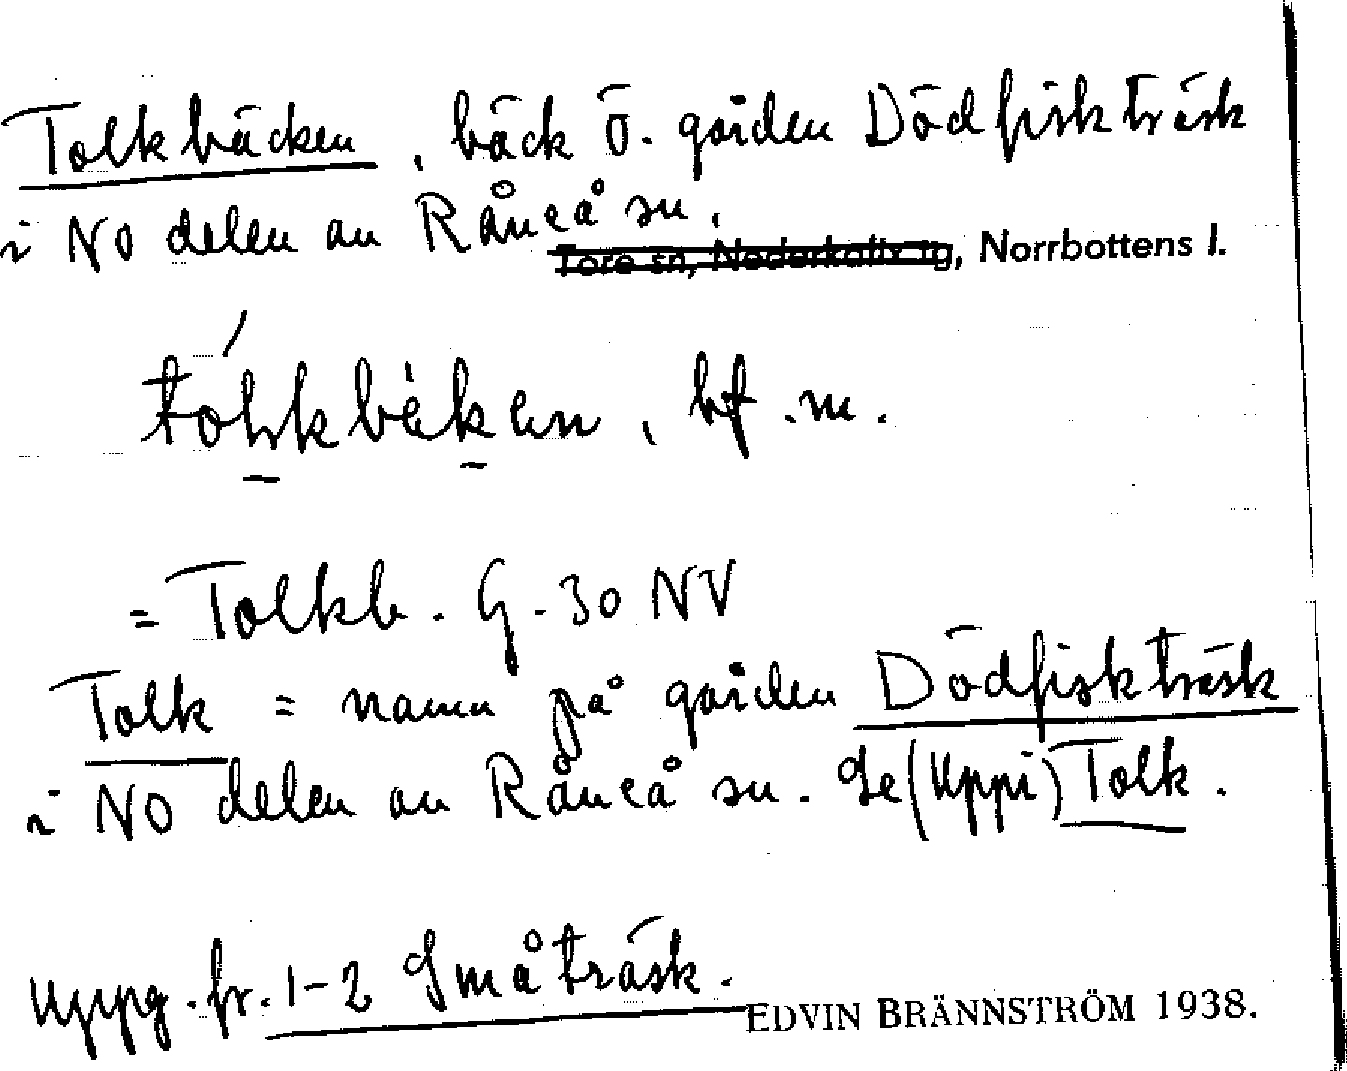 Tolkbäcken, bäck Ö. gården Dödfiskträsk
i NO delen av Råneå sn.
Töre sn, Nederkalix tg, Norrbottens l.
bf. m.
= Tolkb. G-30 NV
Tolk = namn på gården Dödfiskträsk
i NO delen av Råneå sn. Se (Uppi) Tolk.
Uppg. fr. 1-2 Småträsk.
EDVIN BRÄNNSTRÖM 1938.